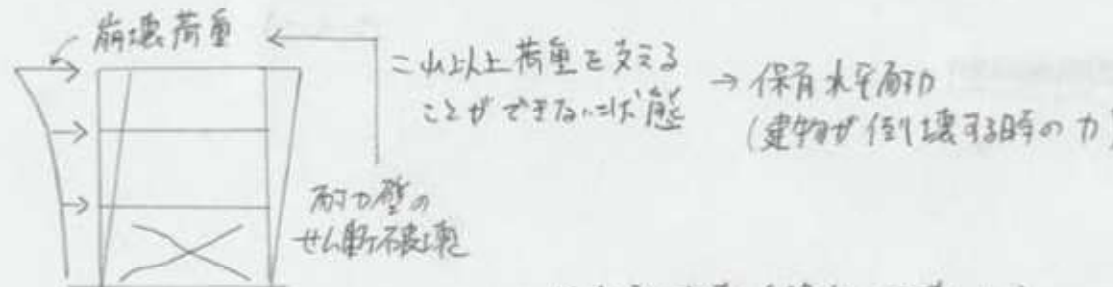 崩壊荷重
これ以上荷重を支える
ことができない状態
→ 保有水平耐力
(建物が倒壊する時の力)
耐力壁の
せん断破壊